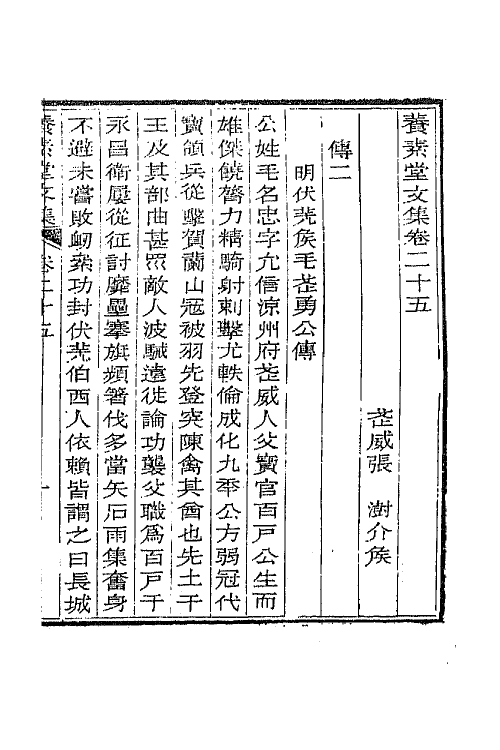 養素堂文集卷二十五
武威張　澍介侯
傳二
明伏羌侯毛武勇公傳
公姓毛名忠字允信涼州府武威人父寶官百戶公生而
雄傑饒膂力精騎射刺擊尤軼倫成化九年公方弱冠代
寶領兵從擊賀蘭山冦被羽先登突陳禽其酋也先土干
王及其部曲甚眾敵人波駴遠徙論功襲父職爲百戶于
永昌衛屢從征討靡壘搴旗頻箸伐多當矢石雨集奮身
不避未嘗敗衂案功封伏羌伯西人依賴皆謌之曰長城
養素堂文集　卷二十五　一